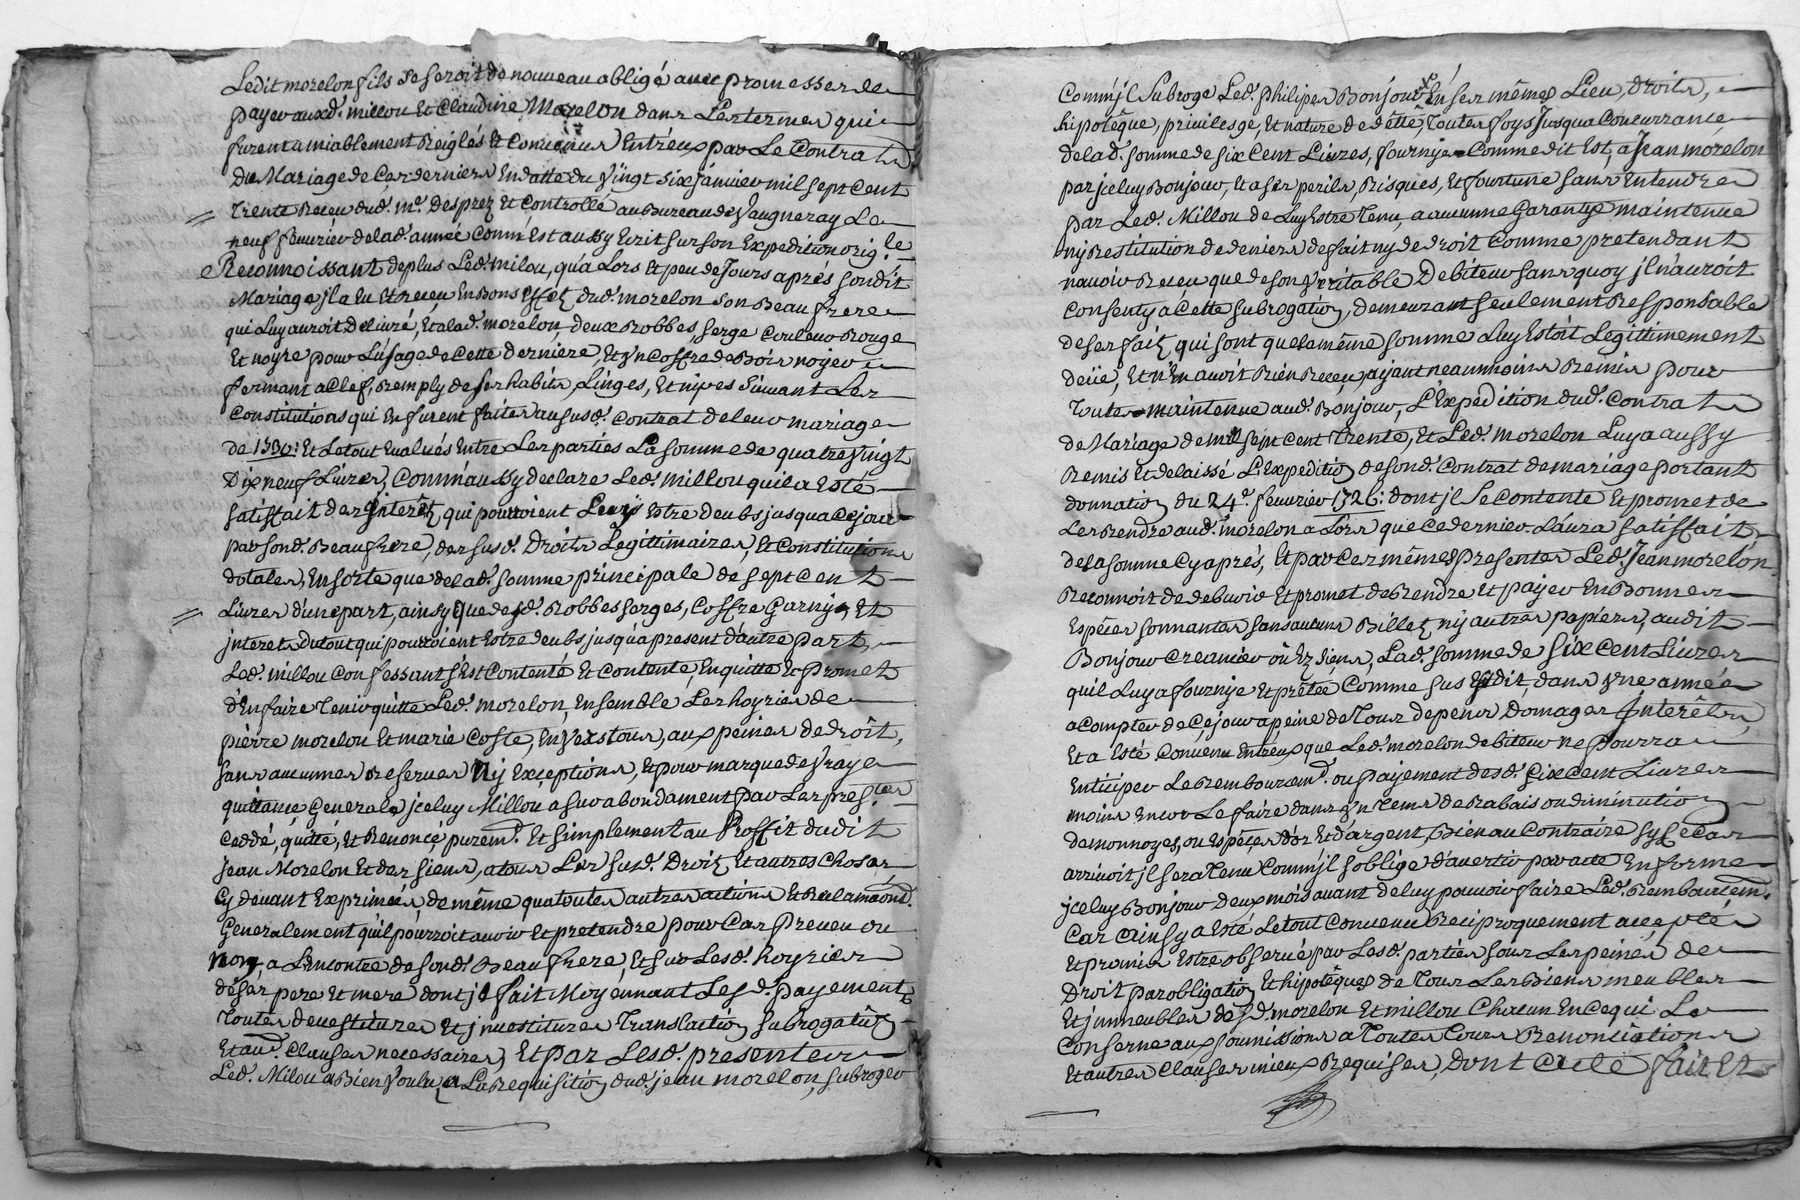 Ledit morelon fils se seroit de nouveau obligé avec promesser de
payer auxd. millou Et Claudine Morelon dans Les termes qui
furent amiablement Reiglés Et Convenus Entréux par Le Contrat
Du Mariage de Ces derniers En datte du Vingt six janvier mil sept cent
Trente Receu dud. me. Desprez Et Controllé au bureau de Vaugneray Le
neuf feuurier de lad. année Comm'Est aussy Ecrit sur son Expedition origle.
Reconnoissant de plus Led. milou, qu'a Lors Et peu de Jours aprés Son dit
Mariage jl a Eu Et Receu En Bons Effetz dud. morelon Son Beau frere
qui Luy auroit Deliuré, Et a lad. morelon, deux Robbes, serge Couleur Rouge
Et noyre pour L'usage de Cette derniere, Et Vn Coffre de Bois noyer
fermant a Clef, Remply de ses habits, Linges, Et nipes Suiuant Les
Constitutions qui En furent faites au susd. Contrat de leur mariage
de 1730: Et Le tout Eualués Entre Les parties La somme de quatre Vingt
Dix neuf Liures, Comm'aussy declare Led. millou quil a Esté
satisfait des Interêtz qui pourroient Leurs Estre deubs jusqua Cejour
par sond. Beaufrere, des susd. Droits Legittimaires, Et Constitutions
dotales, En sorte que de lad. Somme principale de sept Cent
Liures d'une part, ainsy que desd. Robbes serges, Coffre Garnys, Et
jnterets du tout qui pourroient Estre deubs jusqu'a present d'autre part,
Led. millou Confessant s'Est Contenté Et Contente, En quitte Et Promet
d'En faire Tenir quitte Led. morelon, Ensemble Les hoyries de
pierre morelon Et marie Coste, En Vers tous, aux peines de droit,
sans aucunnes Reserues Ny Exceptions, Et pour marque de Vraye
quittance Generale jceluy Millou a surabondament par Les prestes.
Ceddé, quitté, Et Renoncé puremt. Et Simplement au Proffit dudit
Jean Morelon Et des siens, a tous Les susd. Droitz Et autres Choses
Cy deuant Exprimées, de même qua toutes autres actions Et Reclamaons.
Generalement qu'il pourroit auoir Et pretendre pour Cas Preveu ou
Non, a L'Encontre de sond. Beau frere, Et sur Lesd. hoyries
de ses pere Et mere dont jl fait Moyennant Lesd. payementz
Toutes deuestitures Et jnuestitures Translation Subrogation
Et aud. Clauses necessaires, Et par Lesd. presentes
Led. Milou a Bien Voulu a La Requisition dud. jean morelon, subroger
Comm'jl Subroge Led. Philipes Bonjour En ses mêmes Lieu, Droits,
hipotêque, priuilesge, Et nature de dette, Toutes foys Jusqua Concurrance
de lad. somme de six Cent Liures, fournye Comme dit Est, a Jean morélon
par jceluy Bonjour, Et a ses perils, Risques, Et fourtune sans Entendre
par Led. Millou de Luy Estre Tenu, a aucunne Garantye maintenue
ny Restitution de deniers de fait ny de droit Comme pretendant
n'auoir Receu que de son Veritable Debiteur sans quoy jl n'auroit
Consenty a Cette subrogation, demeurant seulement Responsable
de ses faitz qui sont que la même somme Luy Estoit Legittimement
deüe, Et n'En auoit Rien Receu, ayant neanmhoins Remis pour
Toutes maintenue aud. Bonjour, L'Expedition dud. Contrat
de Mariage de mil sept Cent Trente, Et Led. morelon Luy a aussy
Remis Et delaissé L'Expedition de sond. Contrat de mariage portant
donnation du 24e. feuurier 1726: dont jl Se Contente Et promet de
Les Rendre aud. morelon a Lors que Ce dernier L'aura satisfait
de la somme Cy aprés, Et par Ces mêmes Presentes Led. Jean morelon
Reconnoit de debuoir Et promet de Rendre Et payer En Bonnes
Espéces sonnantes sans aucuns Billetz ny autres papiers, audit
Bonjour Creancier ou Ez siens, Lad. somme de Six Cent Liures
quil Luy a fournye Et prêtée Comme sus Est dit, dans Vne année
a Compter de Cejour a peine de Tous depens Domages Interêts,
Et a Esté Convenu Entréux que Led. morelon debiteur ne pourra
Enticiper Le Rembourcemt. ou payement desd. Six Cent Liures
moins Encor Le faire dans Vn Tems de Rabais ou diminution
de monnoyes, ou Espéces d'or Et d'argent, Bien au Contraire sy Le Cas
arriuoit jl sera Tenu Comm'jl s'oblige d'auertir par acte En forme
jceluy Bonjour deux mois auant de luy pouuoir faire Led. Rembourcemt.
Car Ainsy a Esté Le tout Conuenu Reciproquement accepté
Et promis Estre obserué par Lesd. partiés sous Les peinés de
Droit par obligation Et hipotêques de Tous Les Biens meubles
Et jmmeubles desd. morelon Et millou Chacun En Ce qui Le
Conserne aux soumissions a Toutes Cours Renonciations
Et autres Clauses mieux Requises, Dont acte fait Et